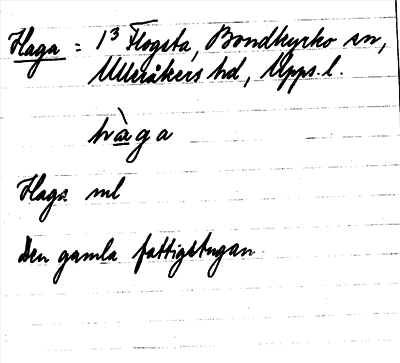 Haga : 1³ Flogsta, Bondkyrko sn,
Ulleråkers hd, Upps. l.
hàga
Haga ml
Den gamla fattigstugan